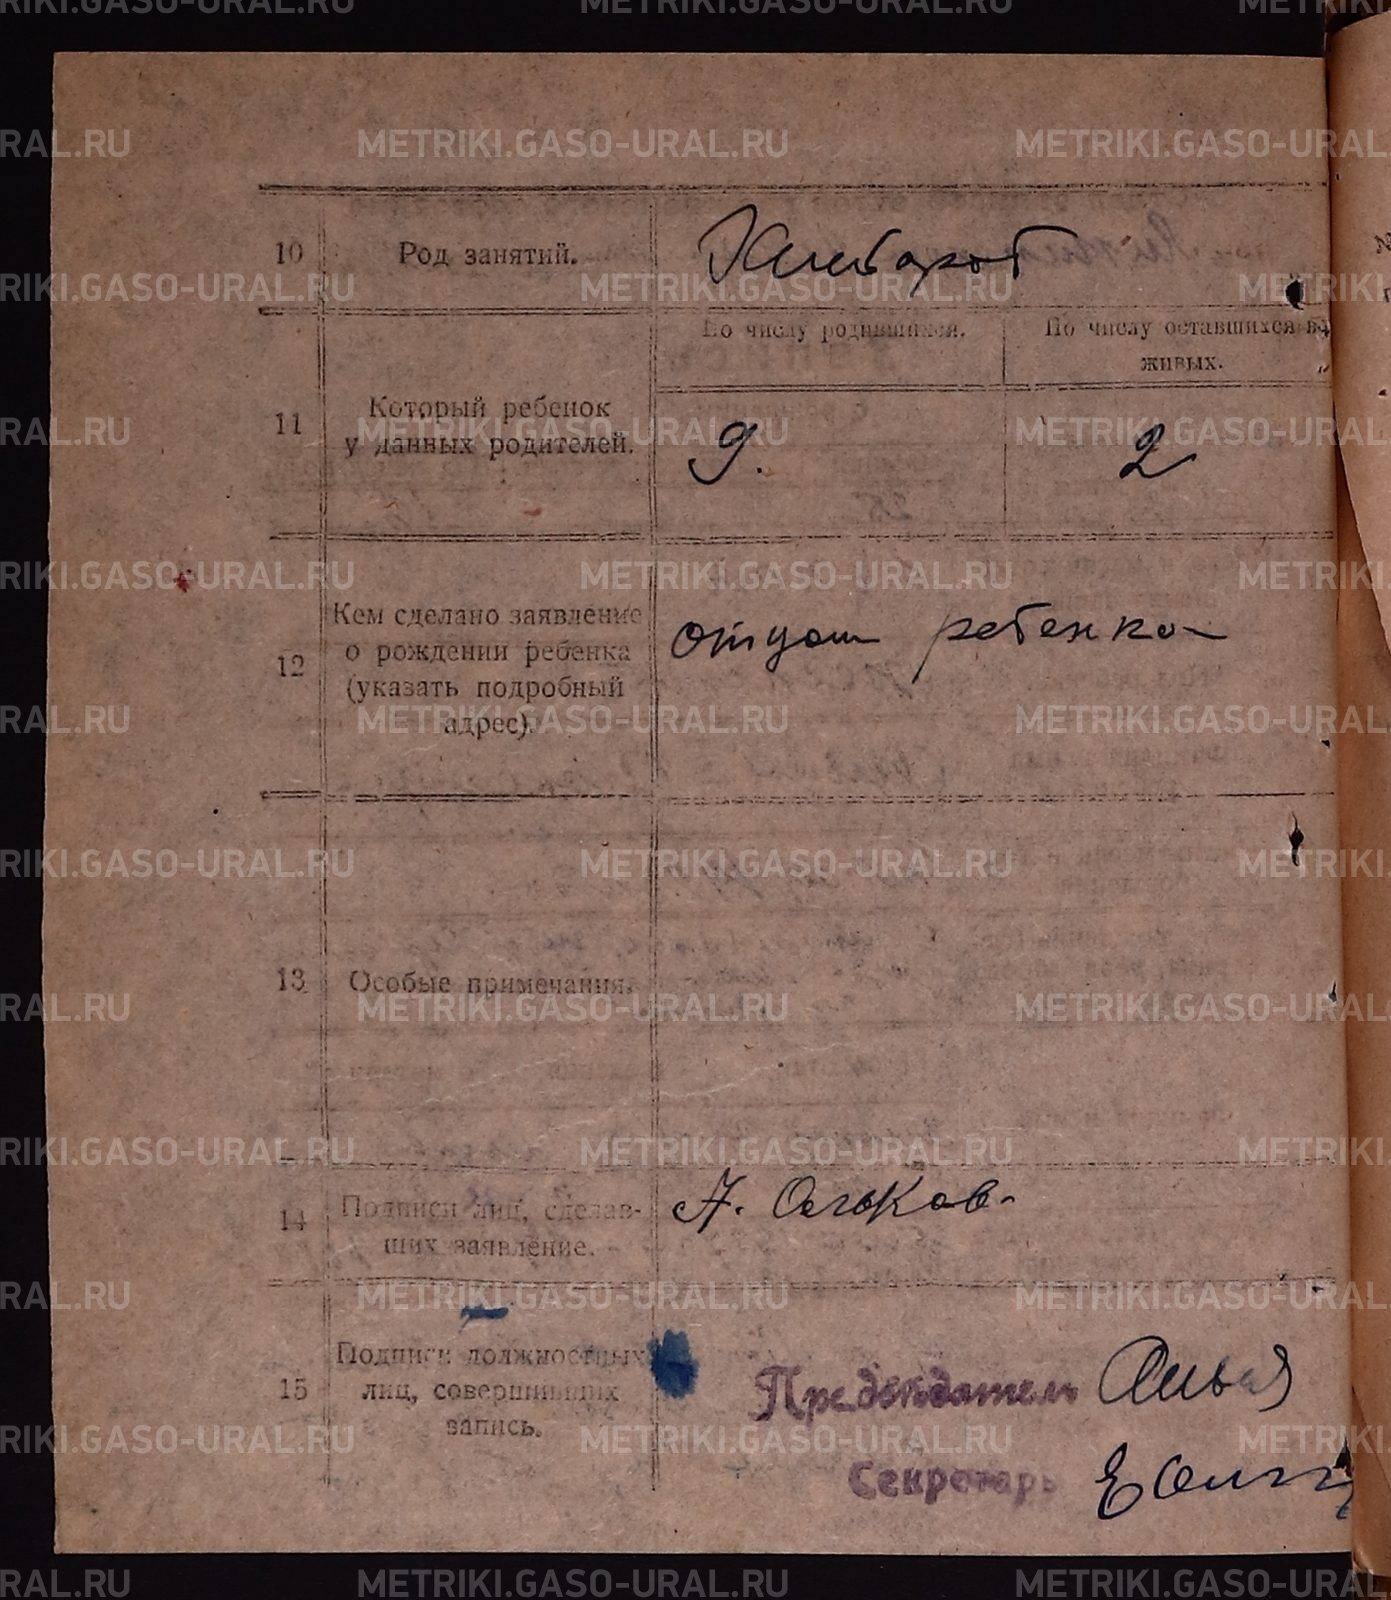 10 Род занятий. Хлебороб
По числу родившихся. По числу оставшихся в
живых.
11 Который ребенок
у данных родителей. 9. 2
Кем сделано заявление
12 о рождении ребенка
(указать подробный
адрес).
отцом ребенка
13 Особые примечания.
14 Подписи лиц, сделав-
ших заявление.
А. Ольков
15 Подписи должностных
лиц, совершивших
запись.
Председатель
Секретарь
METRIKI.GASO-URAL.RU